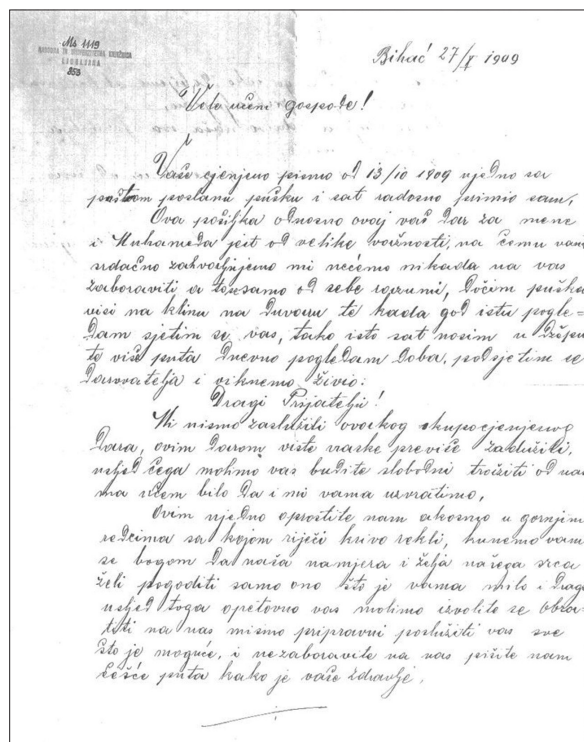 Ms 1119
NARODNA IN UNIVERZITETNA KNJIŽNICA
LJUBLJANA
853
Bihać 27/X 1909
Vele učeni gospode!
Vaše cjenjeno pismo od 13/10 1909 ujedno sa
poštom poslanu pušku i sat radosno primio sam,
Ova pošiljka odnosno ovaj vaš dar za mene
i Muhameda jest od velike važnosti, na čemu vam
srdačno zahvaljujemo mi nećemo nikada na vas
zaboraviti a to samo od sebe razumi, Dočim puška
visi na klinu na duvaru te kada god istu pogle=
dam sjetim se vas, tako isto sat nosim u džepu
te više puta dnevno pogledam doba, podsjetim se
darovatelja i viknemo živio:
Dragi Prijatelju!
Mi nismo zaslužili ovakog skupocjenjenog
dara, ovim darom viste nas previče zadužili,
usljed čega molimo vas budite slobodni trošiti od nas
ma učem bilo da i mi vama uzvratimo,
Ovim ujedno oprostite nam akosmo u gornjim
redcima sa kojom riječi krivo rekli, kunemo vam
se bogom da naša namjera i želja našega srca
želi pogoditi samo ono što je vama milo i drago
usljed toga opetovno vas molimo izvolite se obra
titi na nas mismo pripravni poslužiti vas sve
što je moguće, i nezaboravite na nas pišite nam
češće puta kako je vaše zdravlje.